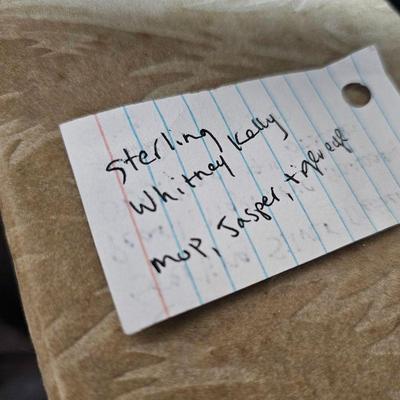 Sterling
Whitney Kelly
MOP, Jasper, tigereye